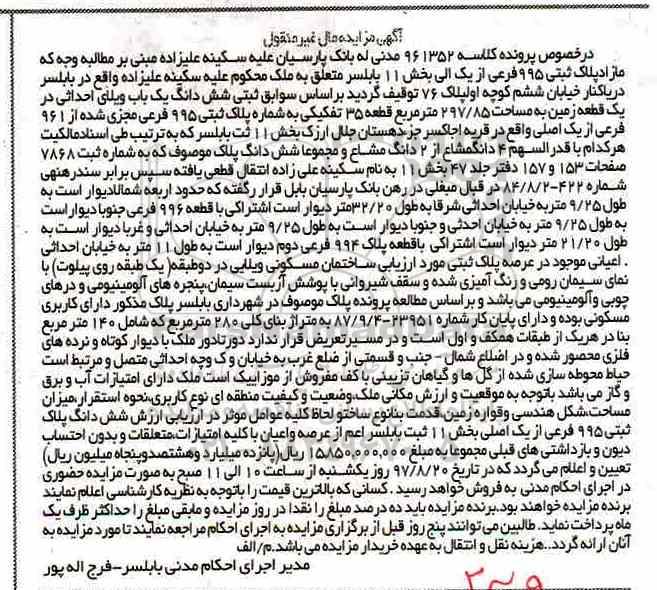 آگهی مزایده مال غیر منقول
درخصوص پرونده کلاسه ۹۶۱۳۵۲ مدنی له بانک پارسیان علیه سکینه علیزاده مبنی بر مطالبه وجه که
مازادپلاک ثبتی ۹۹۵فرعی از یک الی بخش ۱۱ بابلسر متعلق به ملک محکوم علیه سکینه علیزاده واقع در بابلسر
دریاکنار خیابان ششم کوچه اولپلاک ۷۶ توقیف گردید براساس سوابق ثبتی شش دانگ یک باب ویلای احداثی در
یک قطعه زمین به مساحت ۲۹۷/۸۵ مترمربع قطعه ۳۵ تفکیکی به شماره پلاک ثبتی ۹۹۵ فرعی مجزی شده از ۹۶۱
فرعی از یک اصلی واقع در قریه اجاکسر جزءدهستان جلال ارزک بخش ۱۱ ثبت بابلسر که به ترتیب طی اسنادمالکیت
هرکدام با قدر السهم ۴ دانگمشاع از ۲ دانگ مشاع و مجموعا شش دانگ پلاک موصوف که به شماره ثبت ۷۸۶۸
صفحات ۱۵۳ و ۱۵۷ دفتر جلد ۴۷ بخش ۱۱ به نام سکینه علی زاده انتقال قطعی یافته سپس برابر سندرهنی
شماره ۴۲۲-۸۴/۸/۲ در قبال مبلغی در رهن بانک پارسیان بابل قرار رگفته که حدود اربعه شمالادیوار است به
طول ۹/۲۵ متر به خیابان احداثی شرقا به طول ۳۲/۲۰متر دیوار است اشتراکی با قطعه ۹۹۶ فرعی جنوبا دیوار است
به طول ۹/۲۵ متر به خیابان احدثی و جنوبا دیوار است به طول ۹/۲۵ متر به خیابان احداثی و غربا دیوار است به
طول ۲۱/۲۰ متر دیوار است اشتراکی باقطعه پلاک ۹۹۴ فرعی دوم دیوار است به طول ۱۱ متر به خیابان احداثی
. اعیانی موجود در عرصه پلاک ثبتی مورد ارزیابی ساختمان مسکونی ویلایی در دوطبقه( یک طبقه روی پیلوت) با
نمای سیمان رومی و رنگ آمیزی شده و سقف شیروانی با پوشش آزبست سیمان،پنجره های آلومینیومی و درهای
چوبی وآلومینیومی می باشد و براساس مطالعه پرونده پلاک موصوف در شهرداری بابلسر پلاک مذکور دارای کاربری
مسکونی بوده و دارای پایان کار شماره ۲۳۹۵۱-۸۷/۹/۴ به متراژ بنای کلی ۲۸۰ مترمربع که شامل ۱۴۰ متر مربع
بنا در هریک از طبقات همکف و اول است و در مسیرتعریض قرار ندارد دورتادور ملک با دیوار کوتاه و نرده های
فلزی محصور شده و در اضلاع شمال - جنب و قسمتی از ضلع غرب به خیابان و ک وچه احداثی متصل و مرتبط است
حیاط محوطه سازی شده از گل ها و گیاهان تزیینی با کف مفروش از موزاییک است ملک دارای امتیازات آب و برق
و گاز می باشد باتوجه به موقعیت و ارزش مکانی ملک،وضعیت و کیفیت منطقه ای نوع کاربری،نحوه استقرار،میزان
مساحت،شکل هندسی وقواره زمین،قدمت بنانوع ساختو لحاظ کلیه عوامل موثر در ارزیابی ارزش شش دانگ پلاک
ثبتی ۹۹۵ فرعی از یک اصلی بخش ۱۱ ثبت بابلسر اعم از عرصه واعیان با کلیه امتیازات،متعلقات و بدون احتساب
دیون و بازداشتی های قبلی مجموعا به مبلغ ۱۵/۸۵۰,۰۰۰,۰۰۰ ریال(پانزده میلیارد وهشتصدوپنجاه میلیون ریال)
تعیین و اعلام می گردد که در تاریخ ۹۷/۸/۲۰ روز یکشنبه از ساعت ۱۰ الی ۱۱ صبح به صورت مزایده حضوری
در اجرای احکام مدنی به فروش خواهد رسید . کسانی که بالاترین قیمت را باتوجه به نظریه کارشناسی اعلام نمایند
برنده مزایده خواهند بود.برنده مزایده باید ده درصد مبلغ را نقدا در روز مزایده و مابقی مبلغ را حداکثر ظرف یک
ماه پرداخت نماید. طالبین می توانند پنج روز قبل از برگزاری مزایده به اجرای احکام مراجعه نمایند تا مورد مزایده به
آنان ارائه گردد..هزینه نقل و انتقال به عهده خریدار مزایده می باشد.م/الف
مدیر اجرای احکام مدنی بابلسر-فرج اله پور